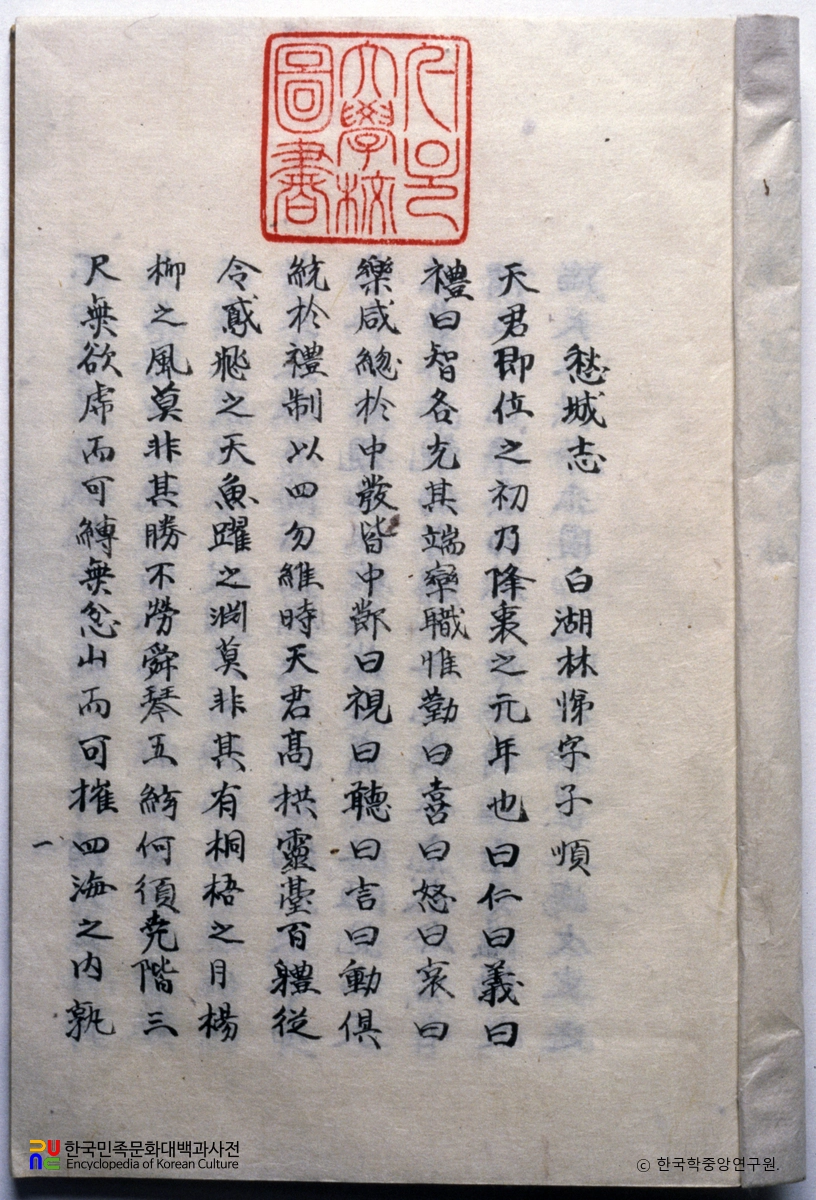 서울
大學校
圖書
愁城志 白湖林悌字子順
天君即位之初乃降衷之元年也曰仁曰義曰
禮曰智各充其端率職惟勤曰喜曰怒曰哀曰
樂咸總於中發皆中節曰視曰聽曰言曰動俱
統於禮制以四勿維時天君高拱靈臺百體從
令鳶飛之天魚躍之淵莫非其有桐梧之月楊
柳之風莫非其勝不勞舜琴五絃何須堯階三
尺無欲虎而可縛無忿山而可摧四海之内孰
一
한국민족문화대백과사전
Encyclopedia of Korean Culture
© 한국학중앙연구원.